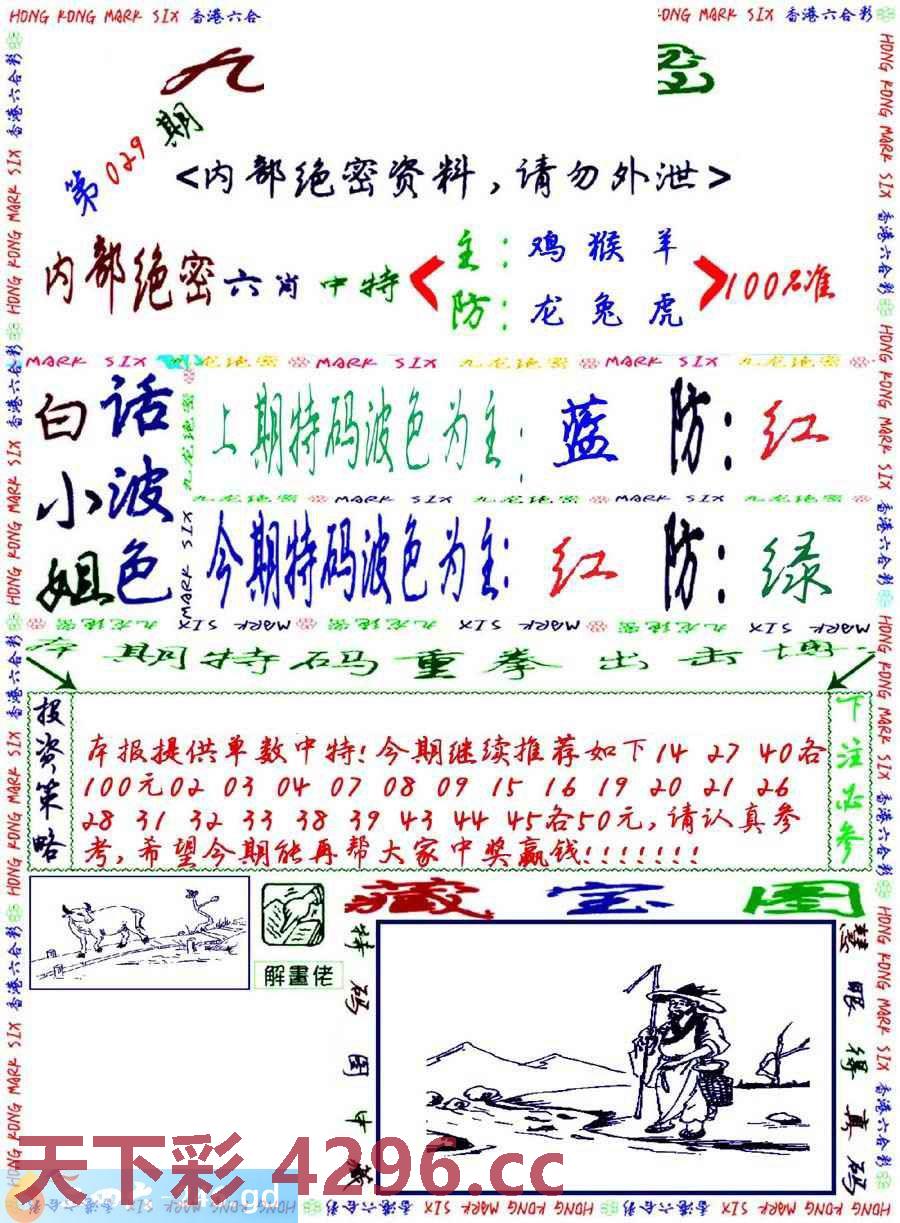 HONG KONG MARK SIX 香港六合
ONG MARK SIX 香港六合彩
九
第029期
<内部绝密资料,请勿外泄>
内部绝密六肖中特
主:鸡猴羊
防:龙兔虎
100%准
MARK SIX 九龙绝密 MARK SIX 九龙绝密 MARK SIX 九龙绝密
白话
小波
姐色
上期特码波色为主:蓝 防:红
九龙绝密 MARK SIX 九龙绝密 MARK SIX 九龙绝密
今期特码波色为主:红 防:绿
九龙绝密 MARK SIX 九龙绝密 MARK SIX 九龙绝密 MARK SIX
期特码重拳出击
投资策略
本报提供单数中特!今期继续推荐如下14 27 40各
100元02 03 04 07 08 09 15 16 19 20 21 26
28 31 32 33 38 39 43 44 45各50元,请认真参
考,希望今期能再帮大家中奖赢钱!!!!!!!
下注必参
藏宝图
解畫佬
特码图中藏
慧眼得真码
天下彩4296.cc
gd